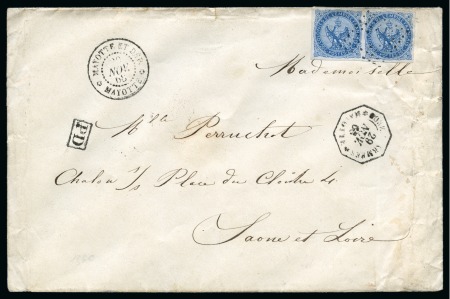 MAYOTTE ET DÉP.
NOV
65
MAYOTTE
Mademoiselle
PD
Mlle Perruchot
Chalon s/s Place du Cloître 4
Saone et Loire